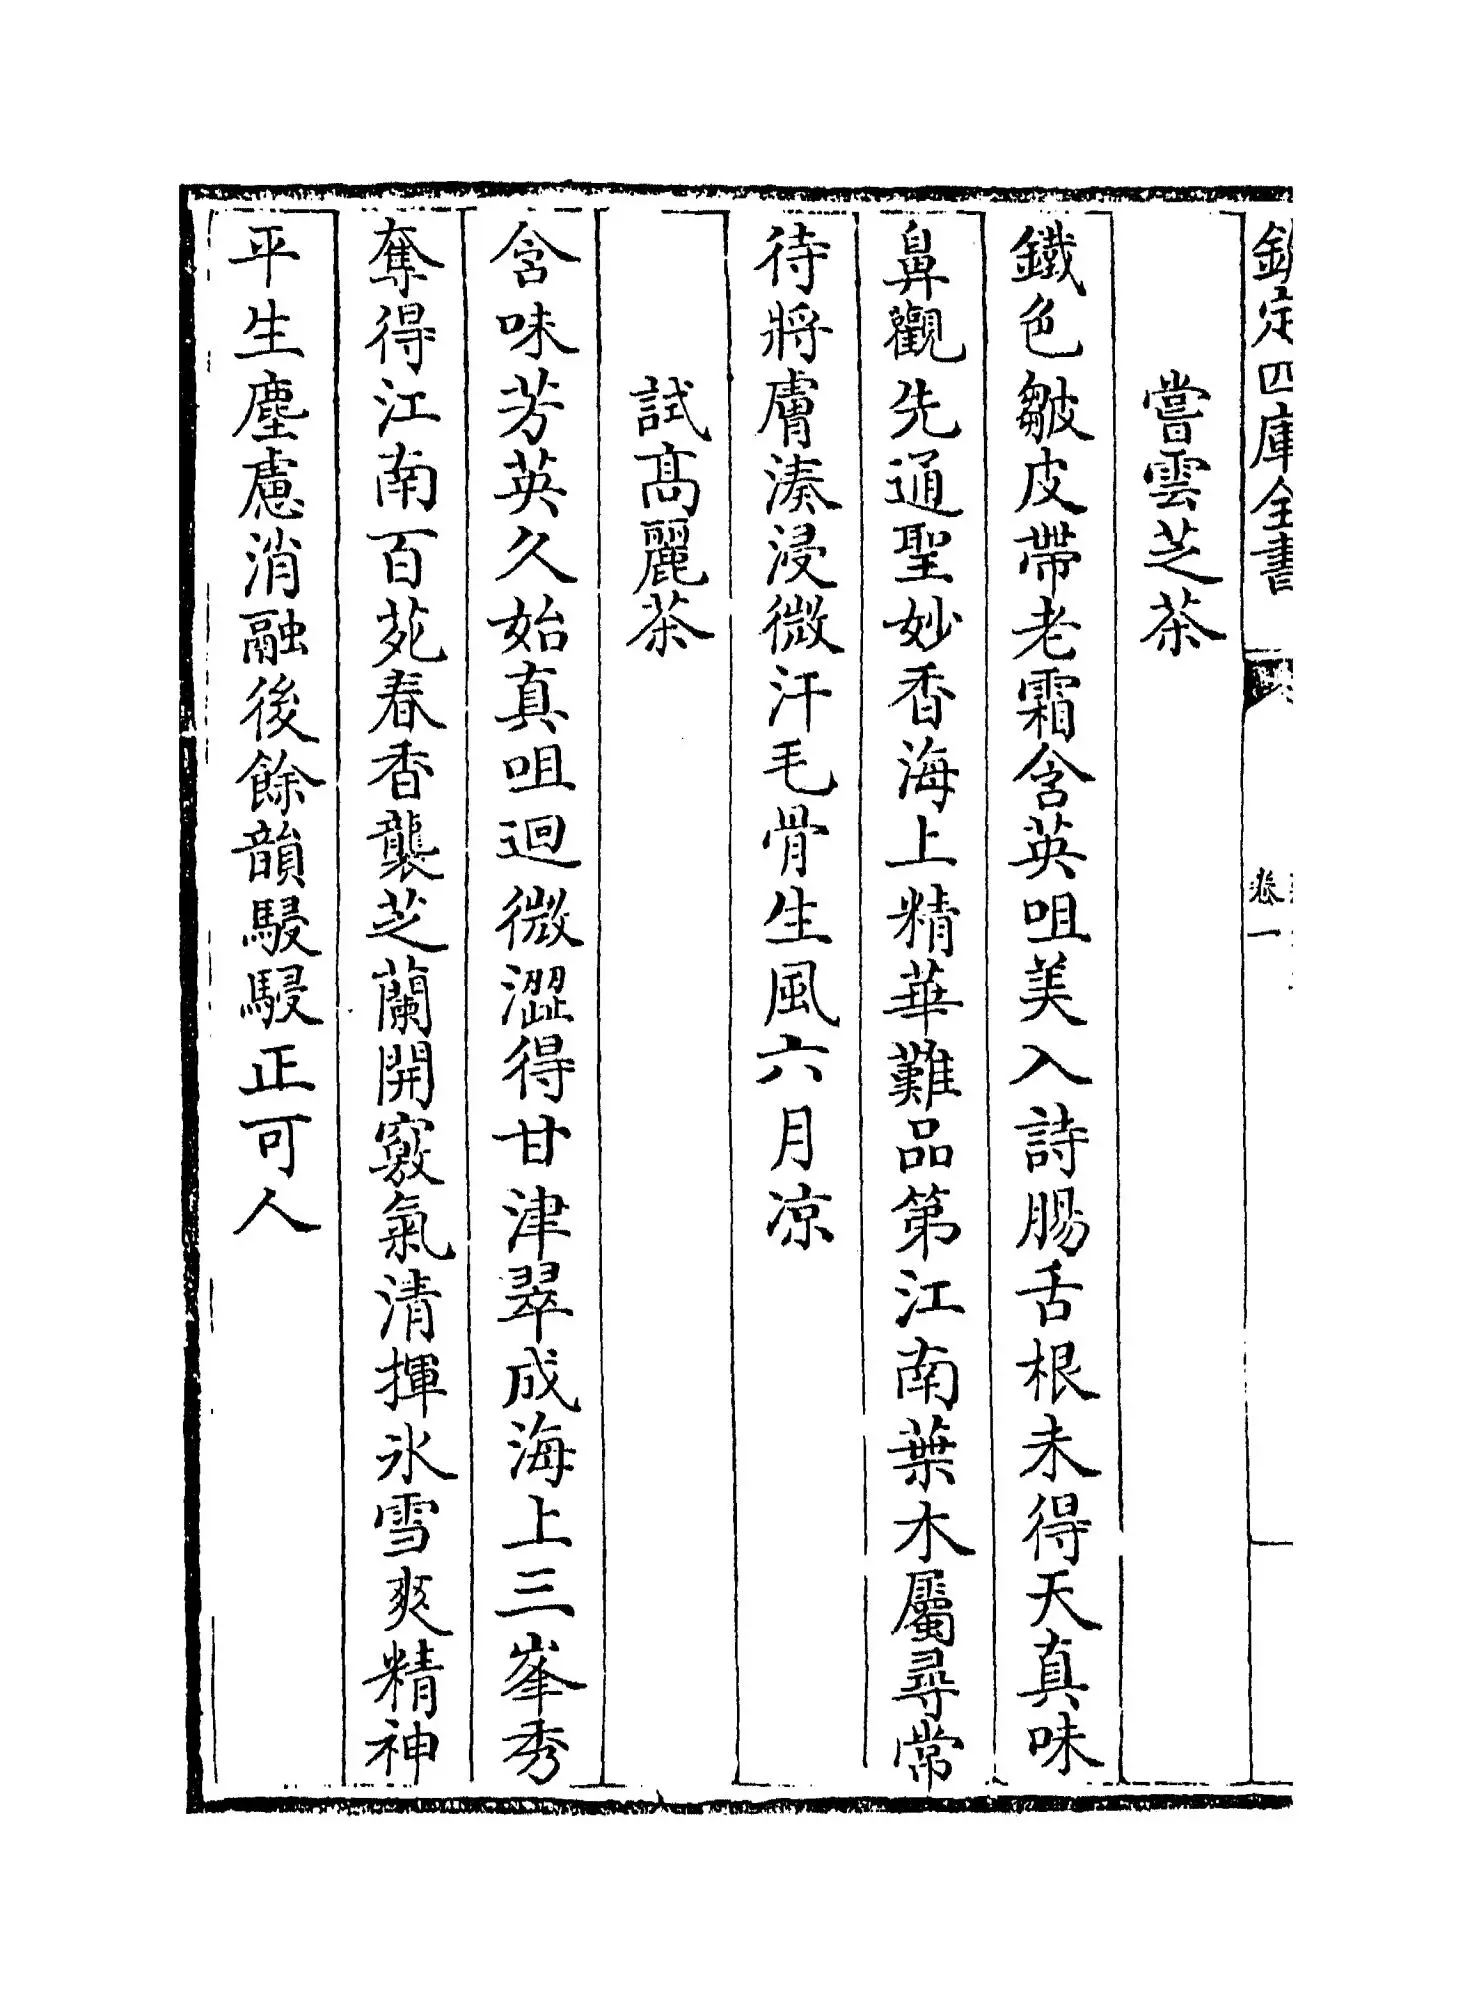 欽定四庫全書
卷一
嘗雲芝茶
鐵色皺皮帶老霜含英咀美入詩腸舌根未得天真味
鼻觀先通聖妙香海上精華難品第江南葉木屬尋常
待將膚湊浸微汗毛骨生風六月凉
試髙麗茶
含味芳英久始真咀迴微澀得甘津翠成海上三峯秀
奪得江南百苑春香襲芝蘭開竅氣清揮氷雪爽精神
平生塵慮消融後餘韻駸駸正可人